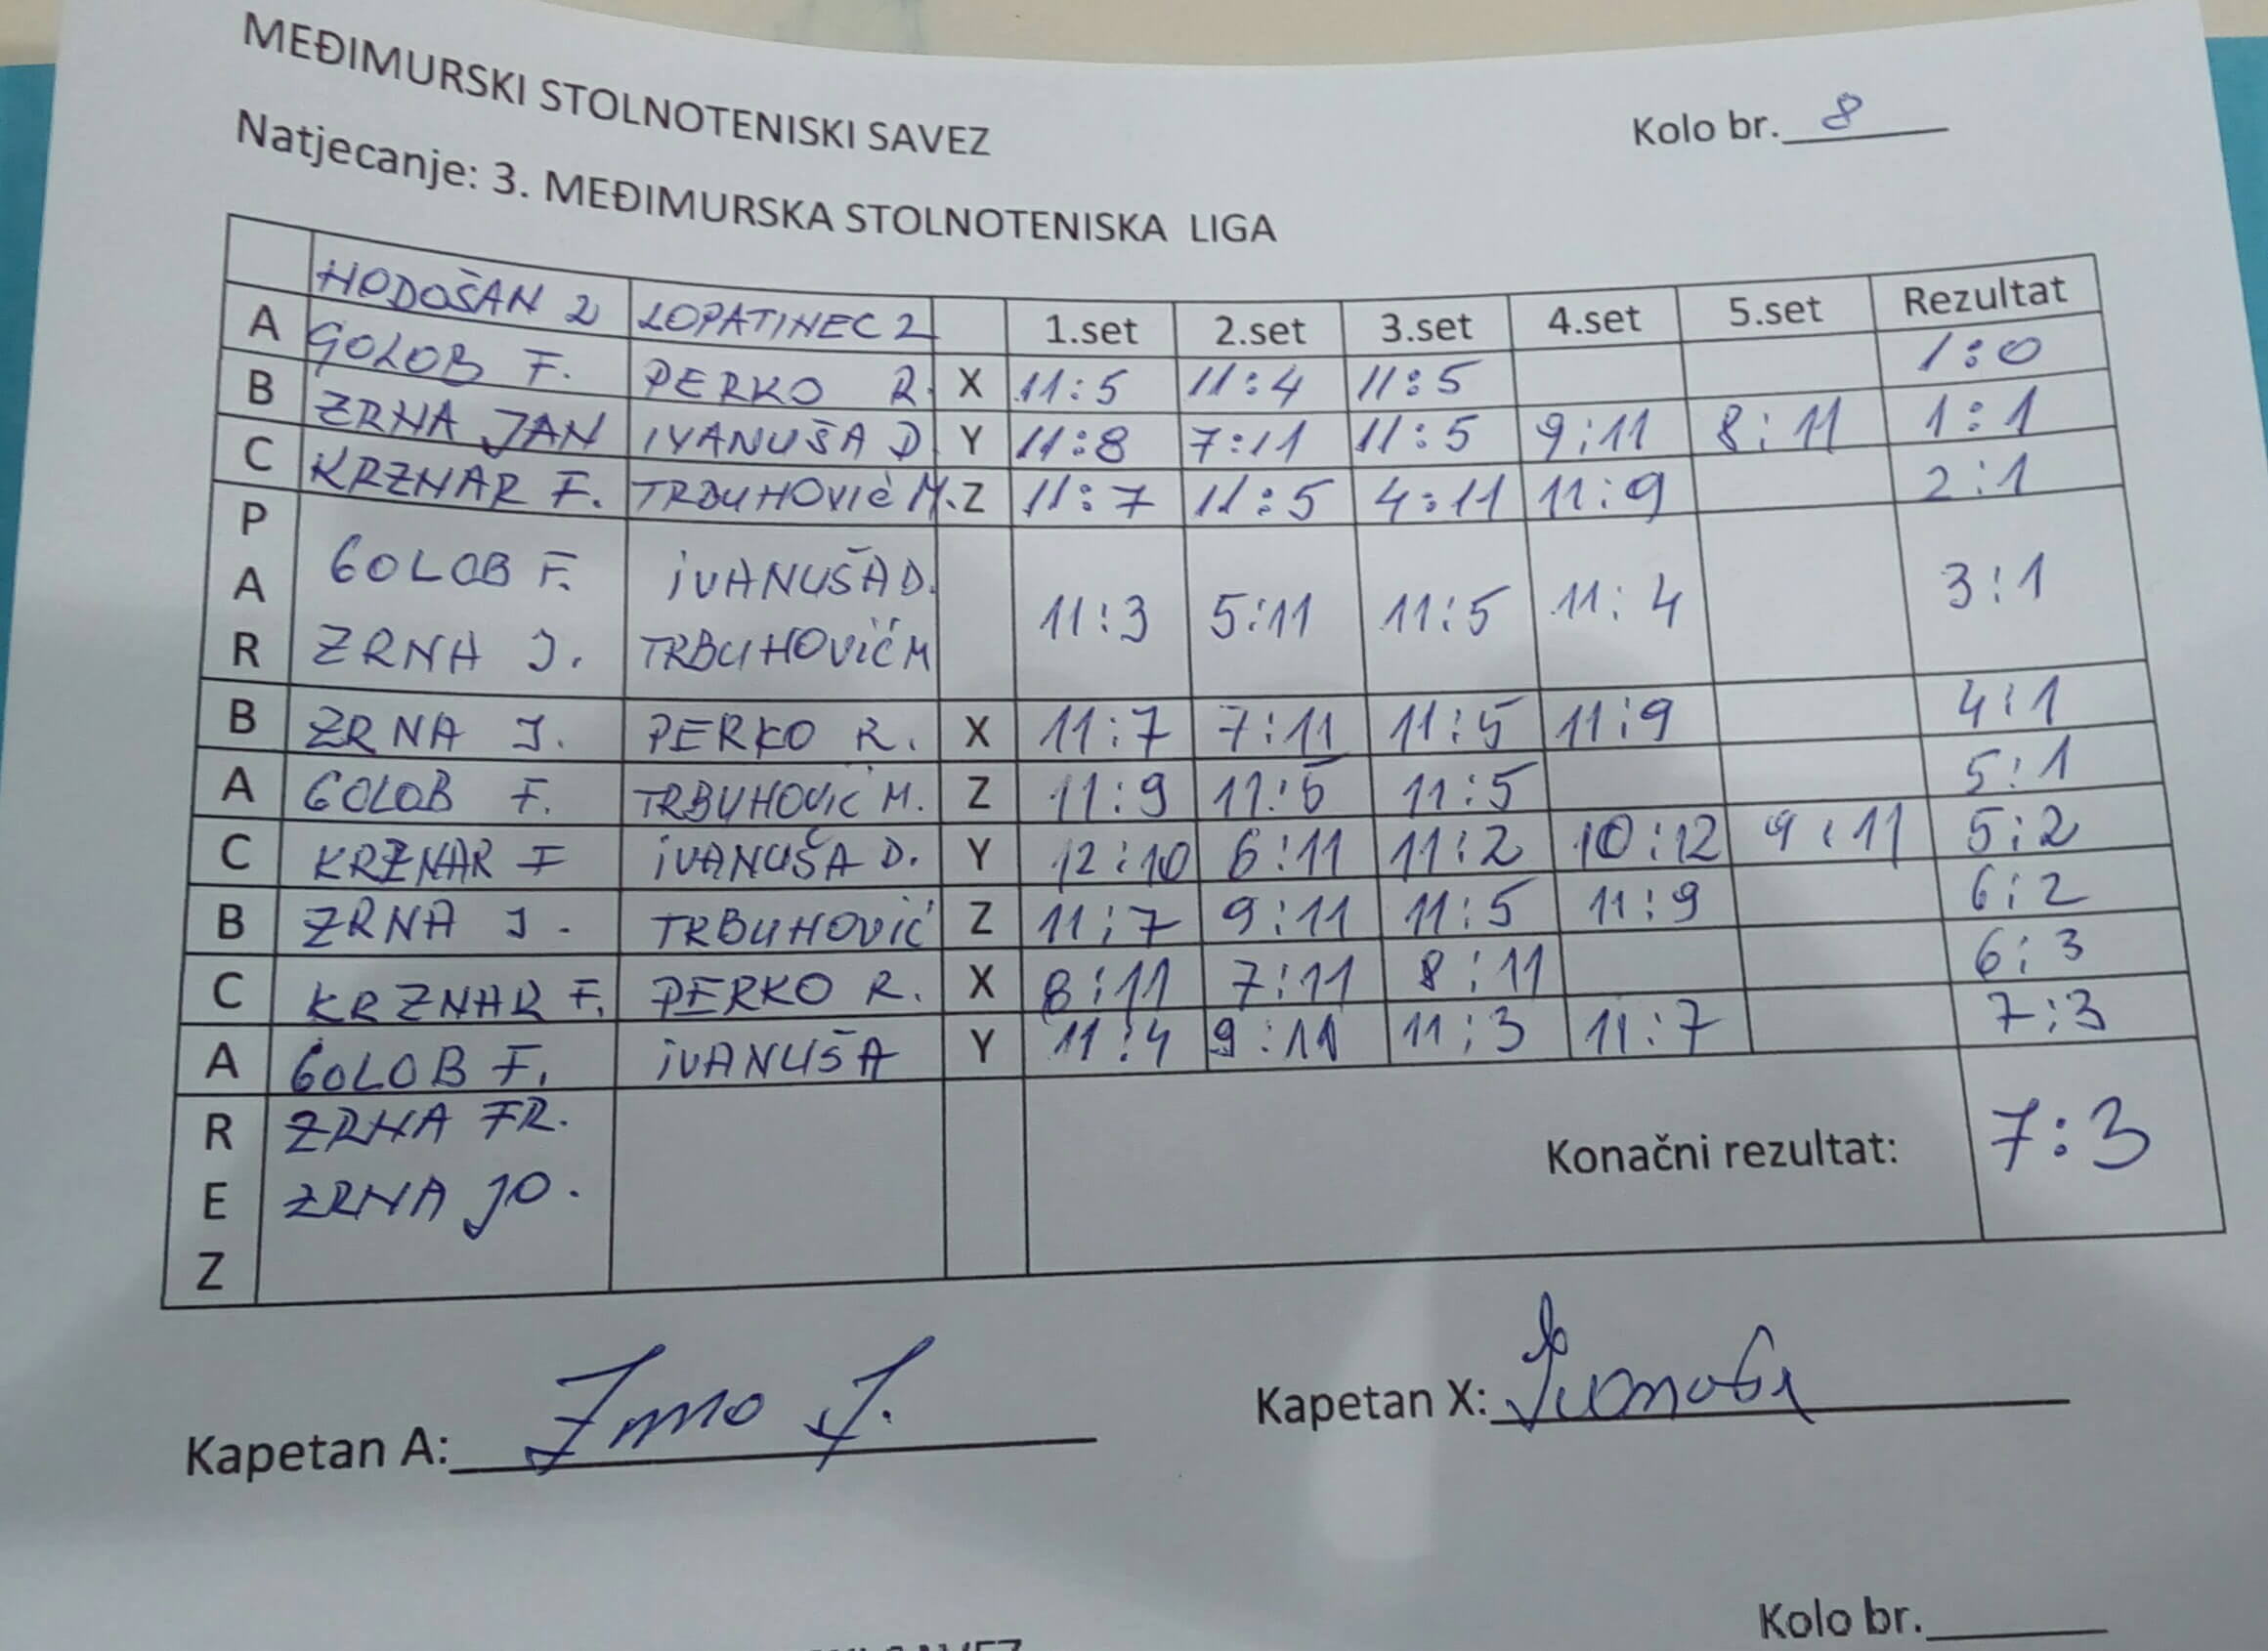 MEĐIMURSKI STOLNOTENISKI SAVEZ
Kolo br. 8
Natjecanje: 3. MEĐIMURSKA STOLNOTENISKA LIGA
HODOŠAN 2 LOPATINEC 2 1.set 2.set 3.set 4.set 5.set Rezultat
A GOLOB F. PERKO R. X 11:5 11:4 11:5 1:0
B ZRNA JAN IVANUŠA D Y 11:8 7:11 11:5 9:11 8:11 1:1
C KRZNAR F. TRBUHOVIĆ M. Z 11:7 11:5 4:11 11:9 2:1
P A R GOLOB F. IVANUŠA D. 11:3 5:11 11:5 11:4 3:1
ZRNA J. TRBUHOVIĆ M
B ZRNA J. PERKO R. X 11:7 7:11 11:5 11:9 4:1
A GOLOB F. TRBUHOVIĆ M. Z 11:9 11:5 11:5 5:1
C KRZNAR F IVANUŠA D. Y 12:10 6:11 11:2 10:12 9:11 5:2
B ZRNA J. TRBUHOVIĆ Z 11:7 9:11 11:5 11:9 6:2
C KRZNAR F. PERKO R. X 8:11 7:11 8:11 6:3
A GOLOB F. IVANUŠA Y 11:4 9:11 11:3 11:7 7:3
R E Z ZRNA FR. Konačni rezultat: 7:3
ZRNA JO.
Kapetan A: Zrna J.
Kapetan X:
Kolo br.